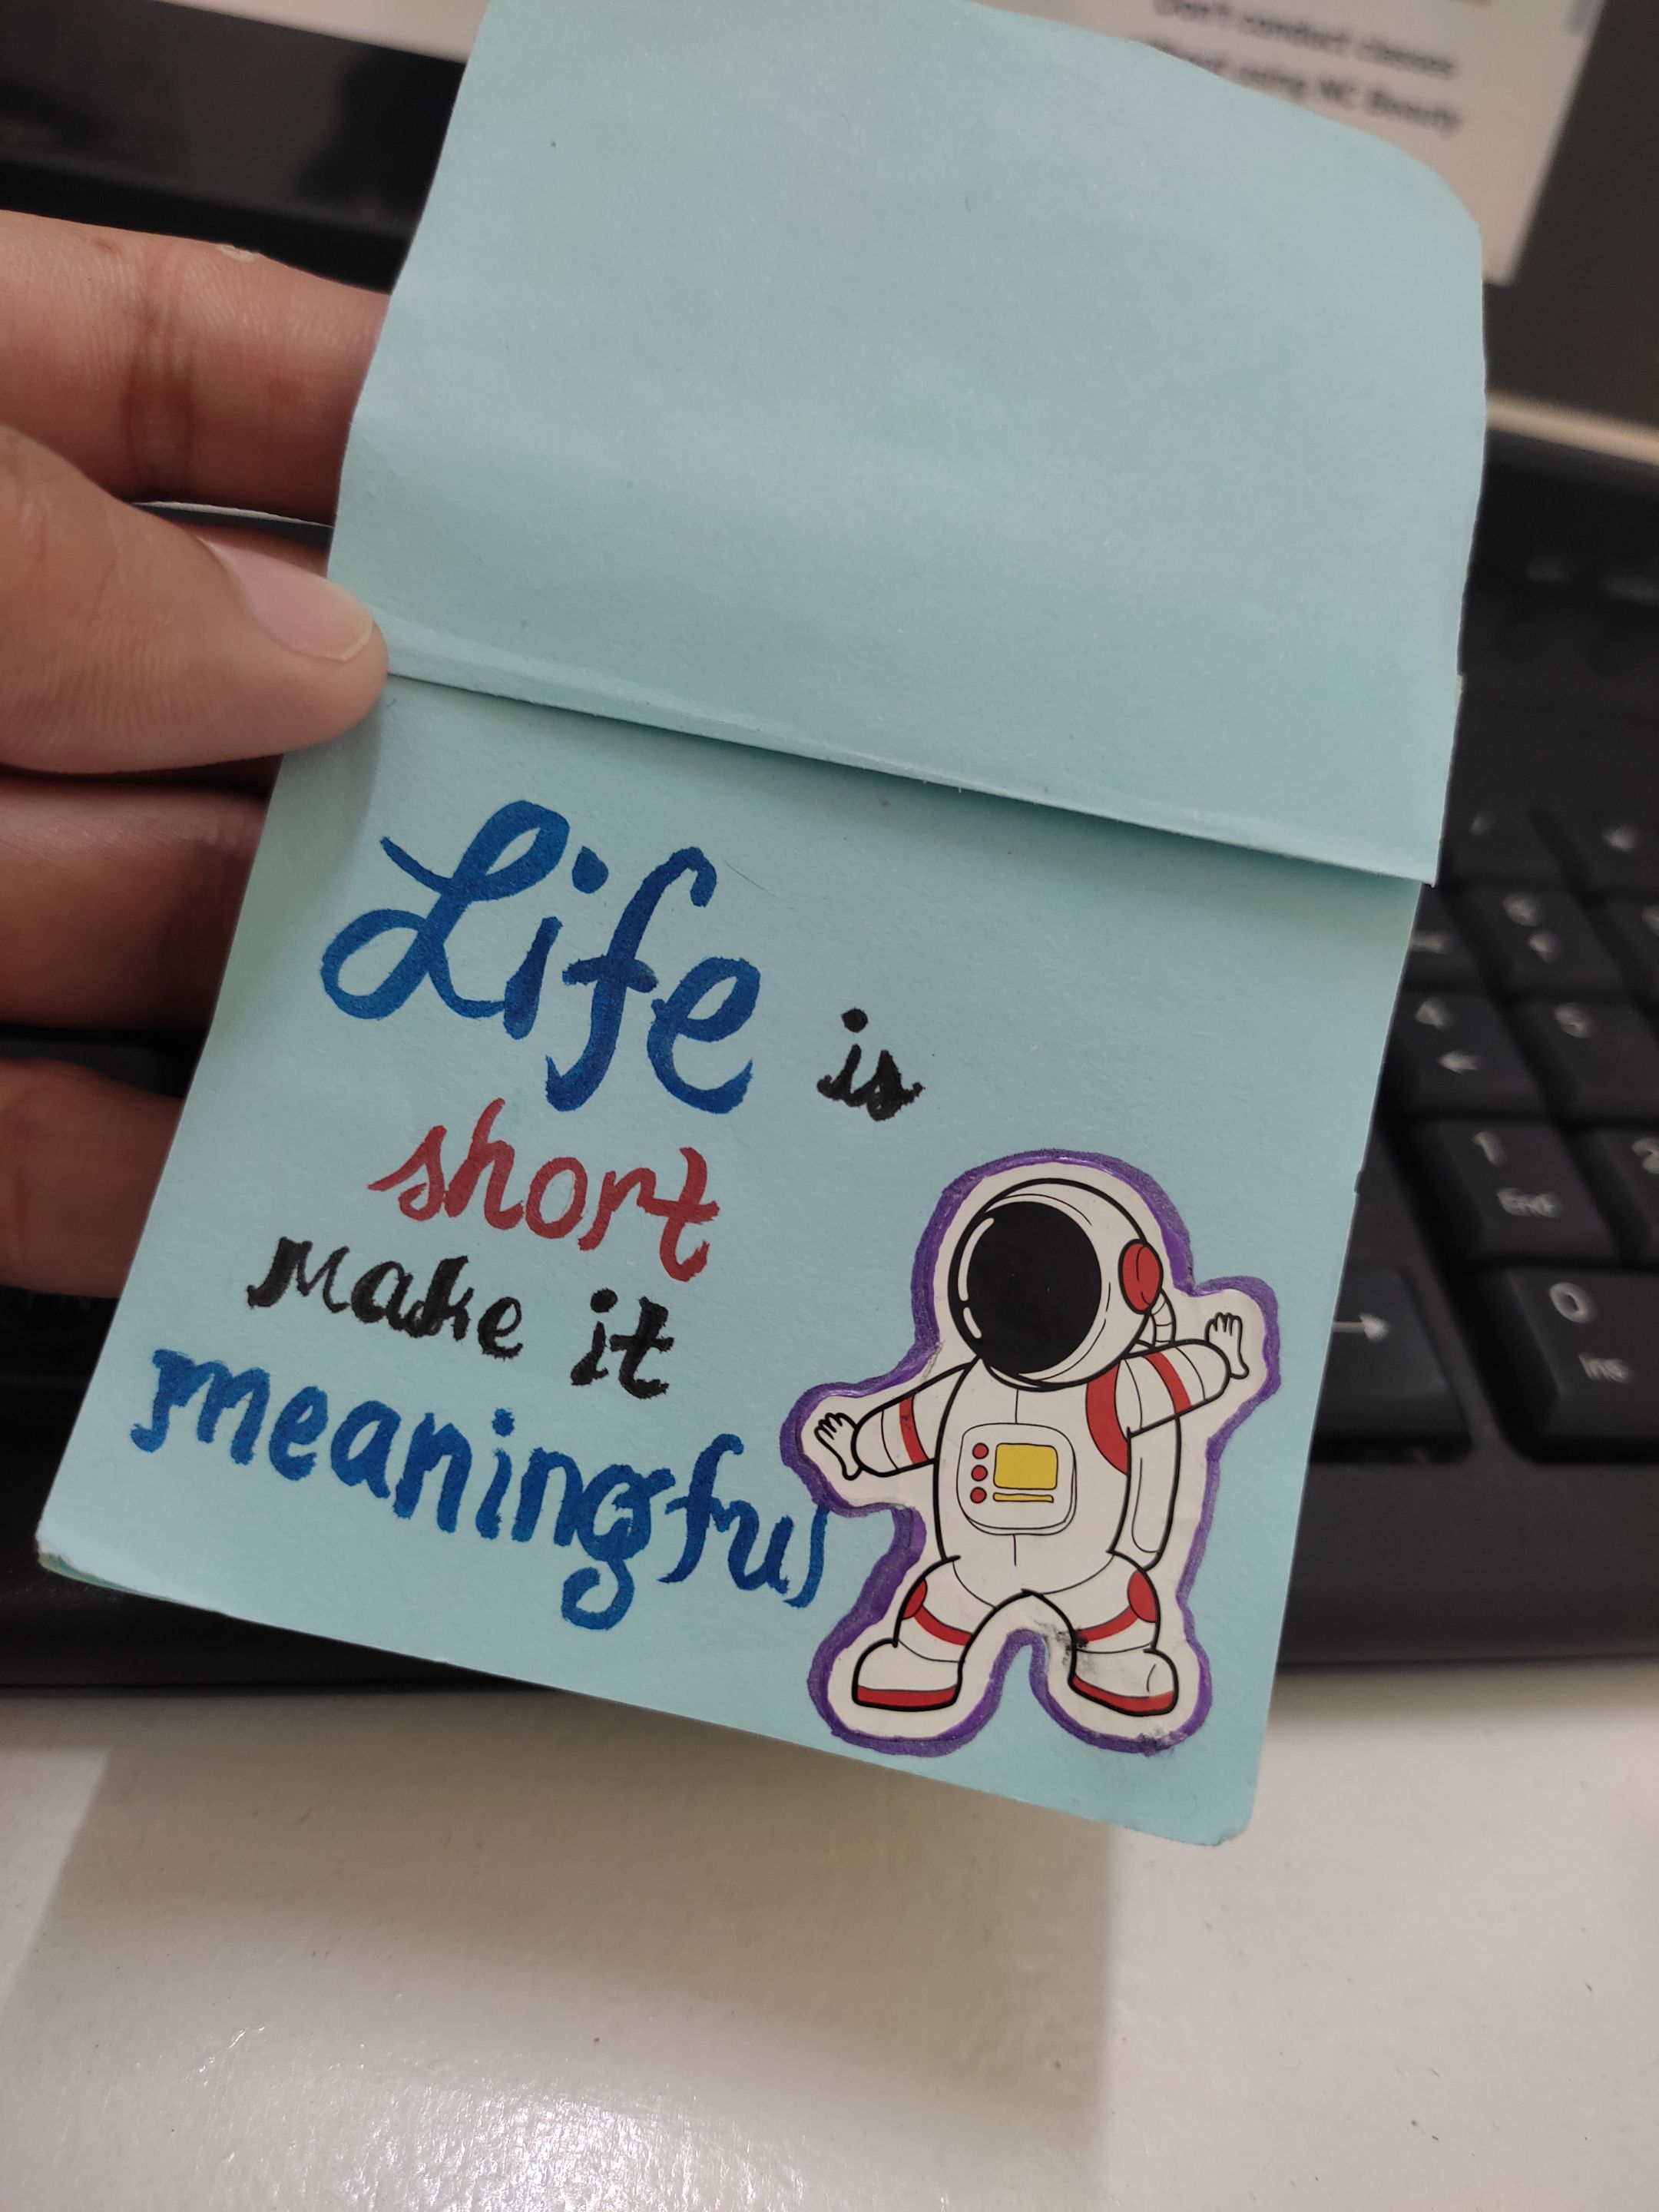 Don't conduct classes
using NC Beauty
Life is
short
Make it
meaningful
4
5
1
End
0
Ins